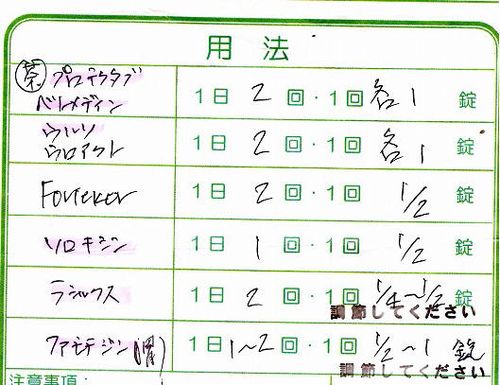 用法
茶 プロテクタブ
ベトメディン 1日 2 回・1回 各1 錠
ウルソ
ウロアクト 1日 2 回・1回 各1 錠
Fortekor 1日 2 回・1回 1/2 錠
ソロキシン 1日 1 回・1回 1/2 錠
ラシックス 1日 2 回・1回 1/4~1/2 錠
調節してください
ファモチジン(胃) 1日 1~2 回・1回 1/2~1 錠
調節してください
注意事項: